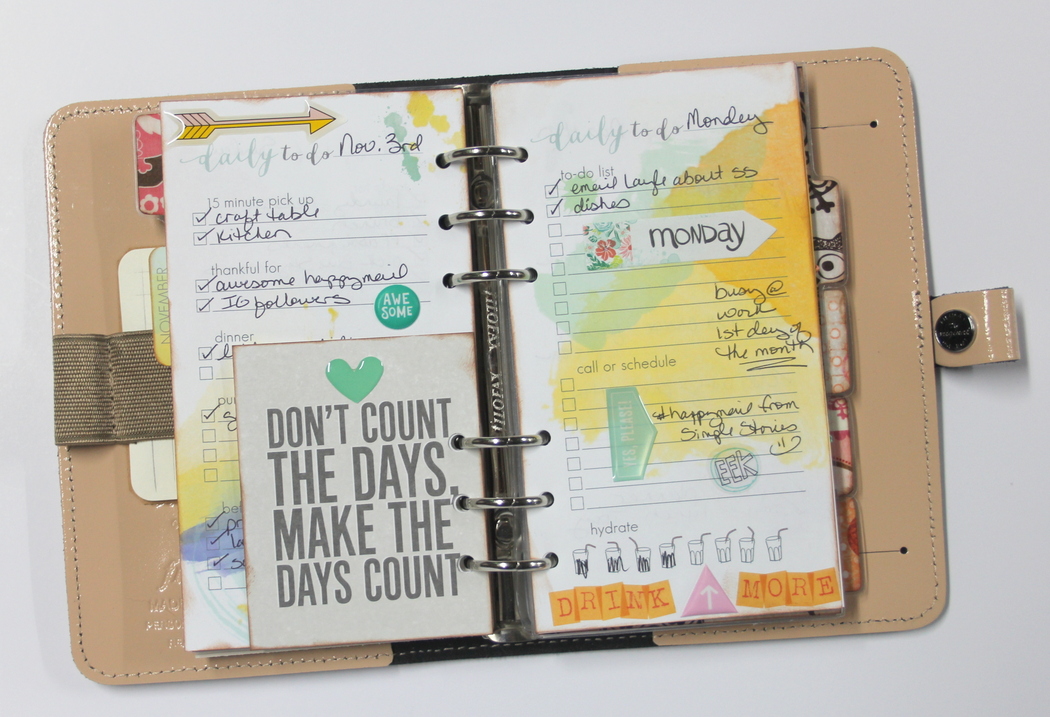 daily to do Nov. 3rd
15 minute pick up
craft table
Kitchen
thankful for
awesome happymail
IG followers
AWE
SOME
NOVEMBER
dinner
DON'T COUNT
THE DAYS.
MAKE THE
DAYS COUNT
FILOFAX
daily to do Monday
to-do list
email Layle about SS
dishes
MONDAY
busy @
work
1st day of
the month
call or schedule
YES, PLEASE!
#happymail from
Simple Stories
EEK
hydrate
DRINK MORE